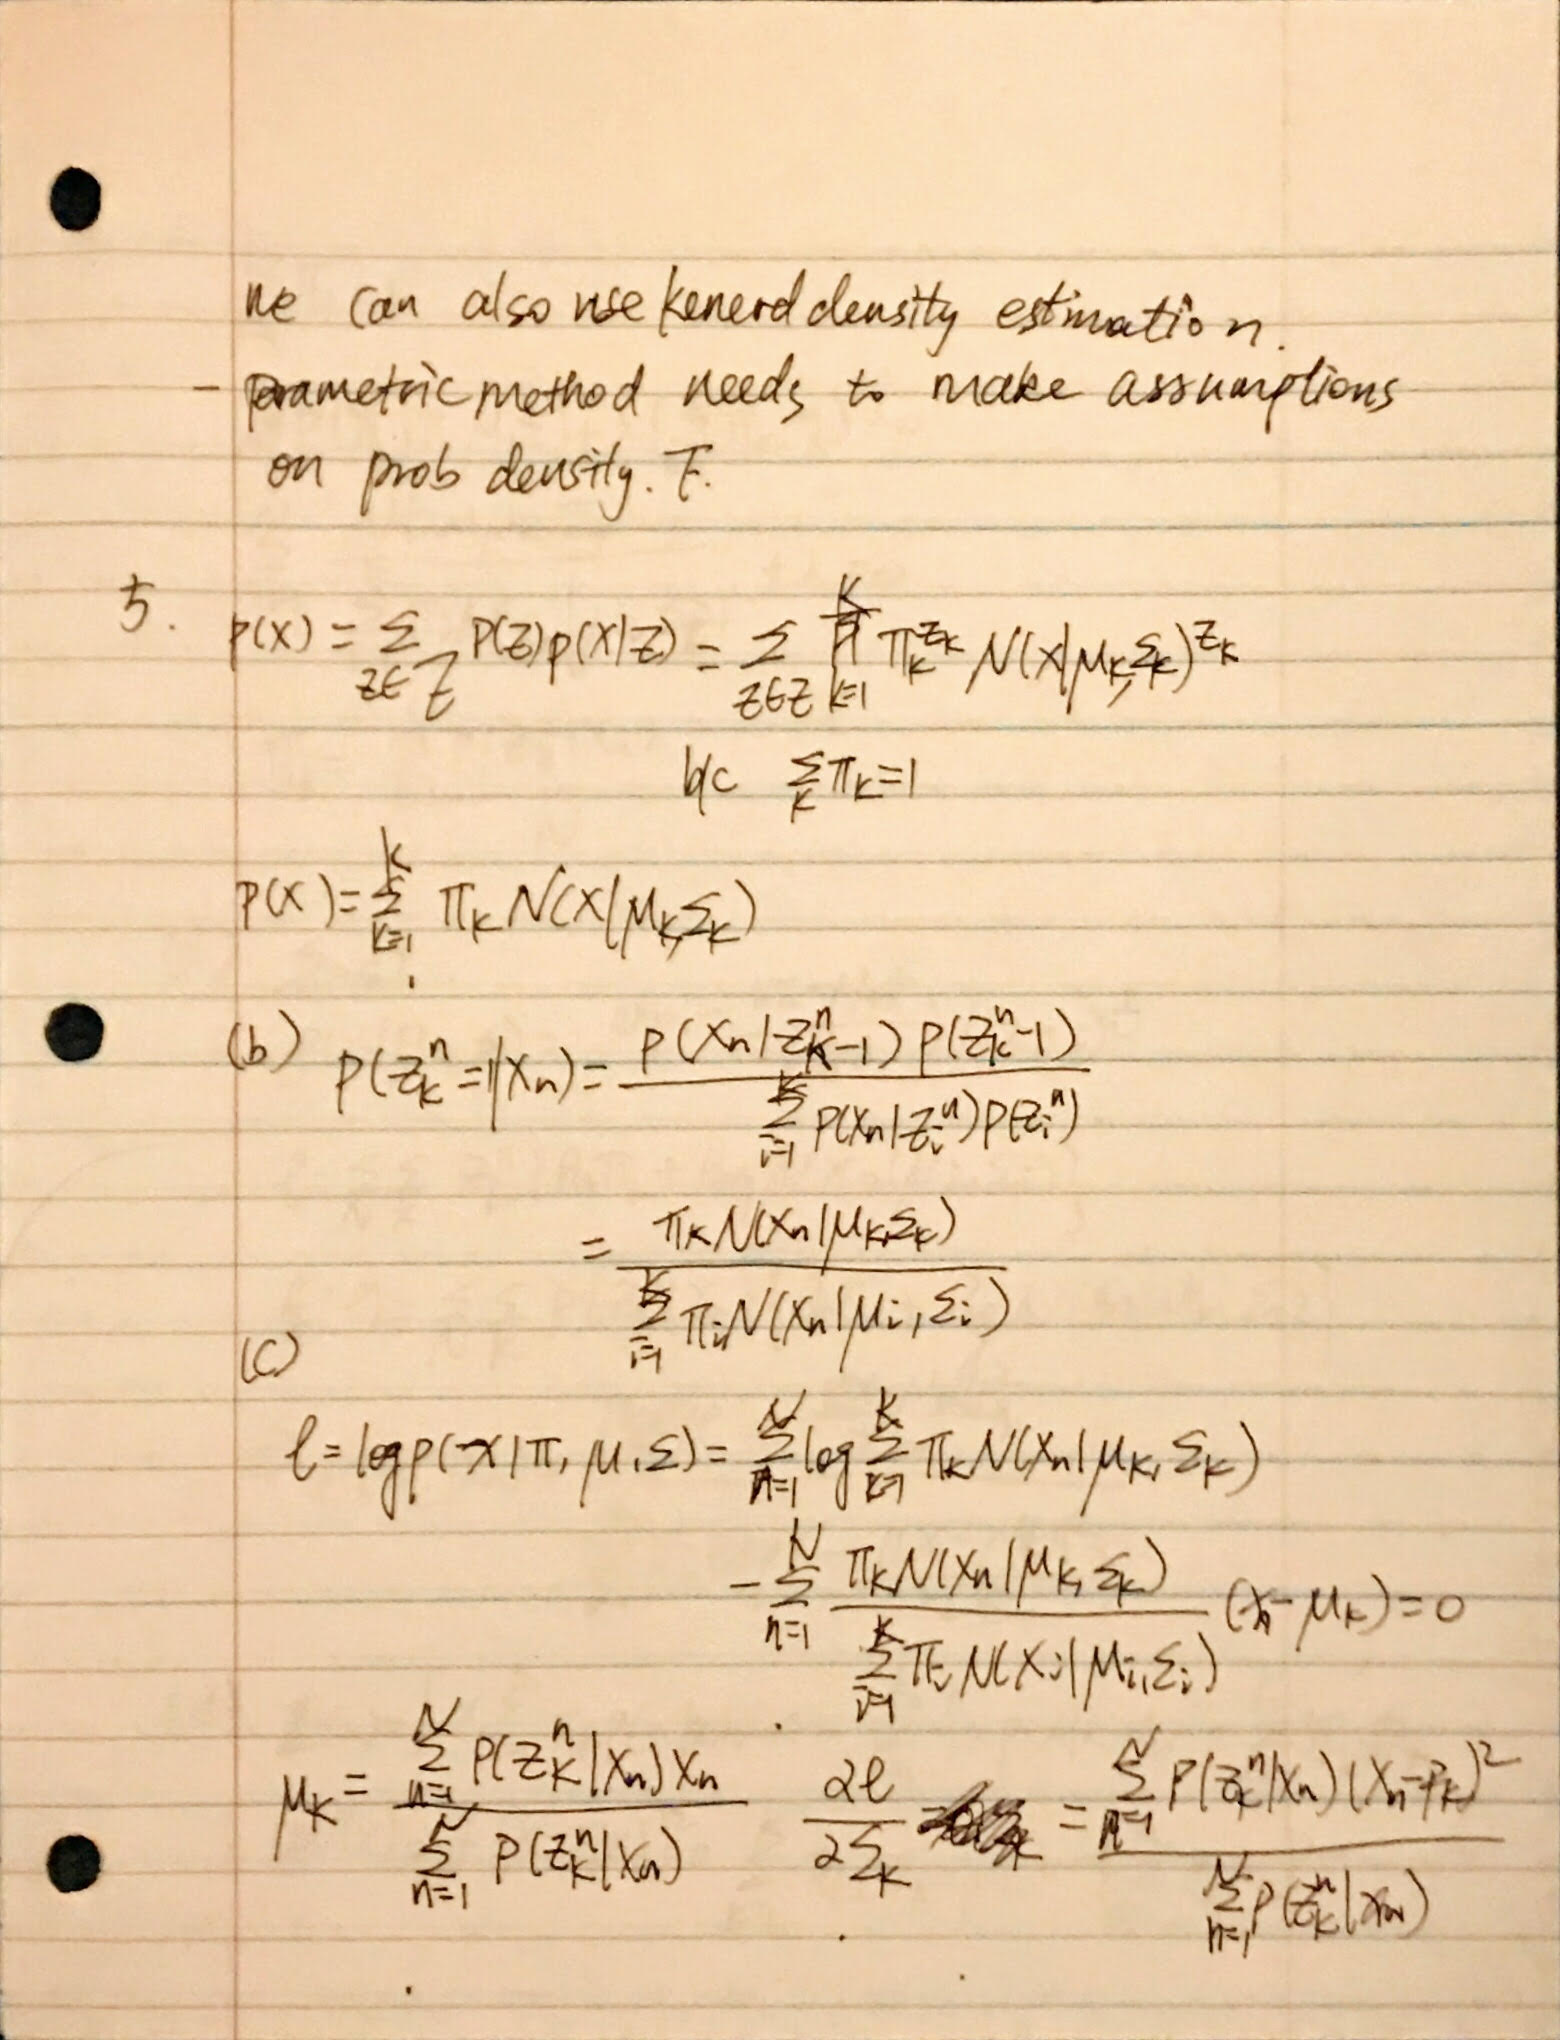 we can also use kenerd density estimation.
- parametric method needs to make assumptions
on prob density. F.
5. p(x) = Σ_{z∈Z} p(z)p(x|z) = Σ_{z∈Z} ∏_{k=1}^{K} π_k^{z_k} N(x|μ_k,Σ_k)^{z_k}
b/c Σ_k π_k=1
p(x)=Σ_{k=1}^{K} π_k N(x|μ_k,Σ_k)
(b) p(z_k^n=1|x_n)= p(x_n|z_k^n-1) p(z_k^n-1) / Σ_{i=1}^{K} p(x_n|z_i^n)p(z_i^n)
= π_k N(x_n|μ_k,Σ_k) / Σ_{i=1}^{K} π_i N(x_n|μ_i, Σ_i)
(c)
ℓ = log p(x|π, μ, Σ) = Σ_{n=1}^{N} log Σ_{k=1}^{K} π_k N(x_n|μ_k, Σ_k)
-Σ_{n=1}^{N} π_k N(x_n|μ_k, Σ_k) / Σ_{i=1}^{K} π_i N(x_j|μ_i,Σ_i) (x_n-μ_k)=0
μ_k = Σ_{n=1}^{N} p(z_k^n|x_n)x_n / Σ_{n=1}^{N} p(z_k^n|x_n) ∂ℓ/∂Σ_k = Σ_{n=1}^{N} p(z_k^n|x_n)(x_n-μ_k)^2 / Σ_{n=1}^{N} p(z_k^n|x_n)